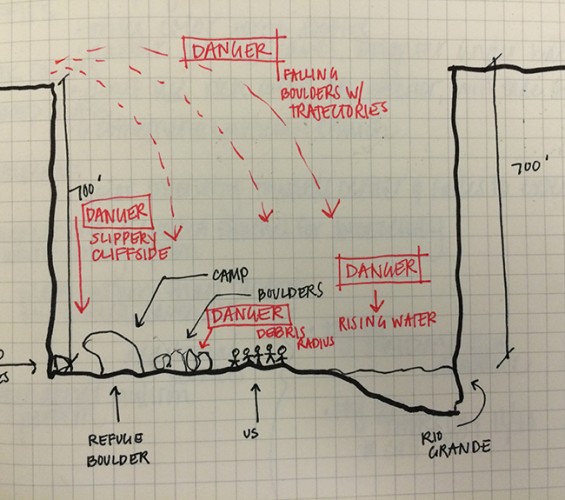 DANGER
FALLING
BOULDERS W/
TRAJECTORIES
700'
700'
DANGER
SLIPPERY
CLIFFSIDE
CAMP
BOULDERS
DANGER
DEBRIS
RADIUS
DANGER
RISING WATER
REFUGE
BOULDER
US
RIO
GRANDE